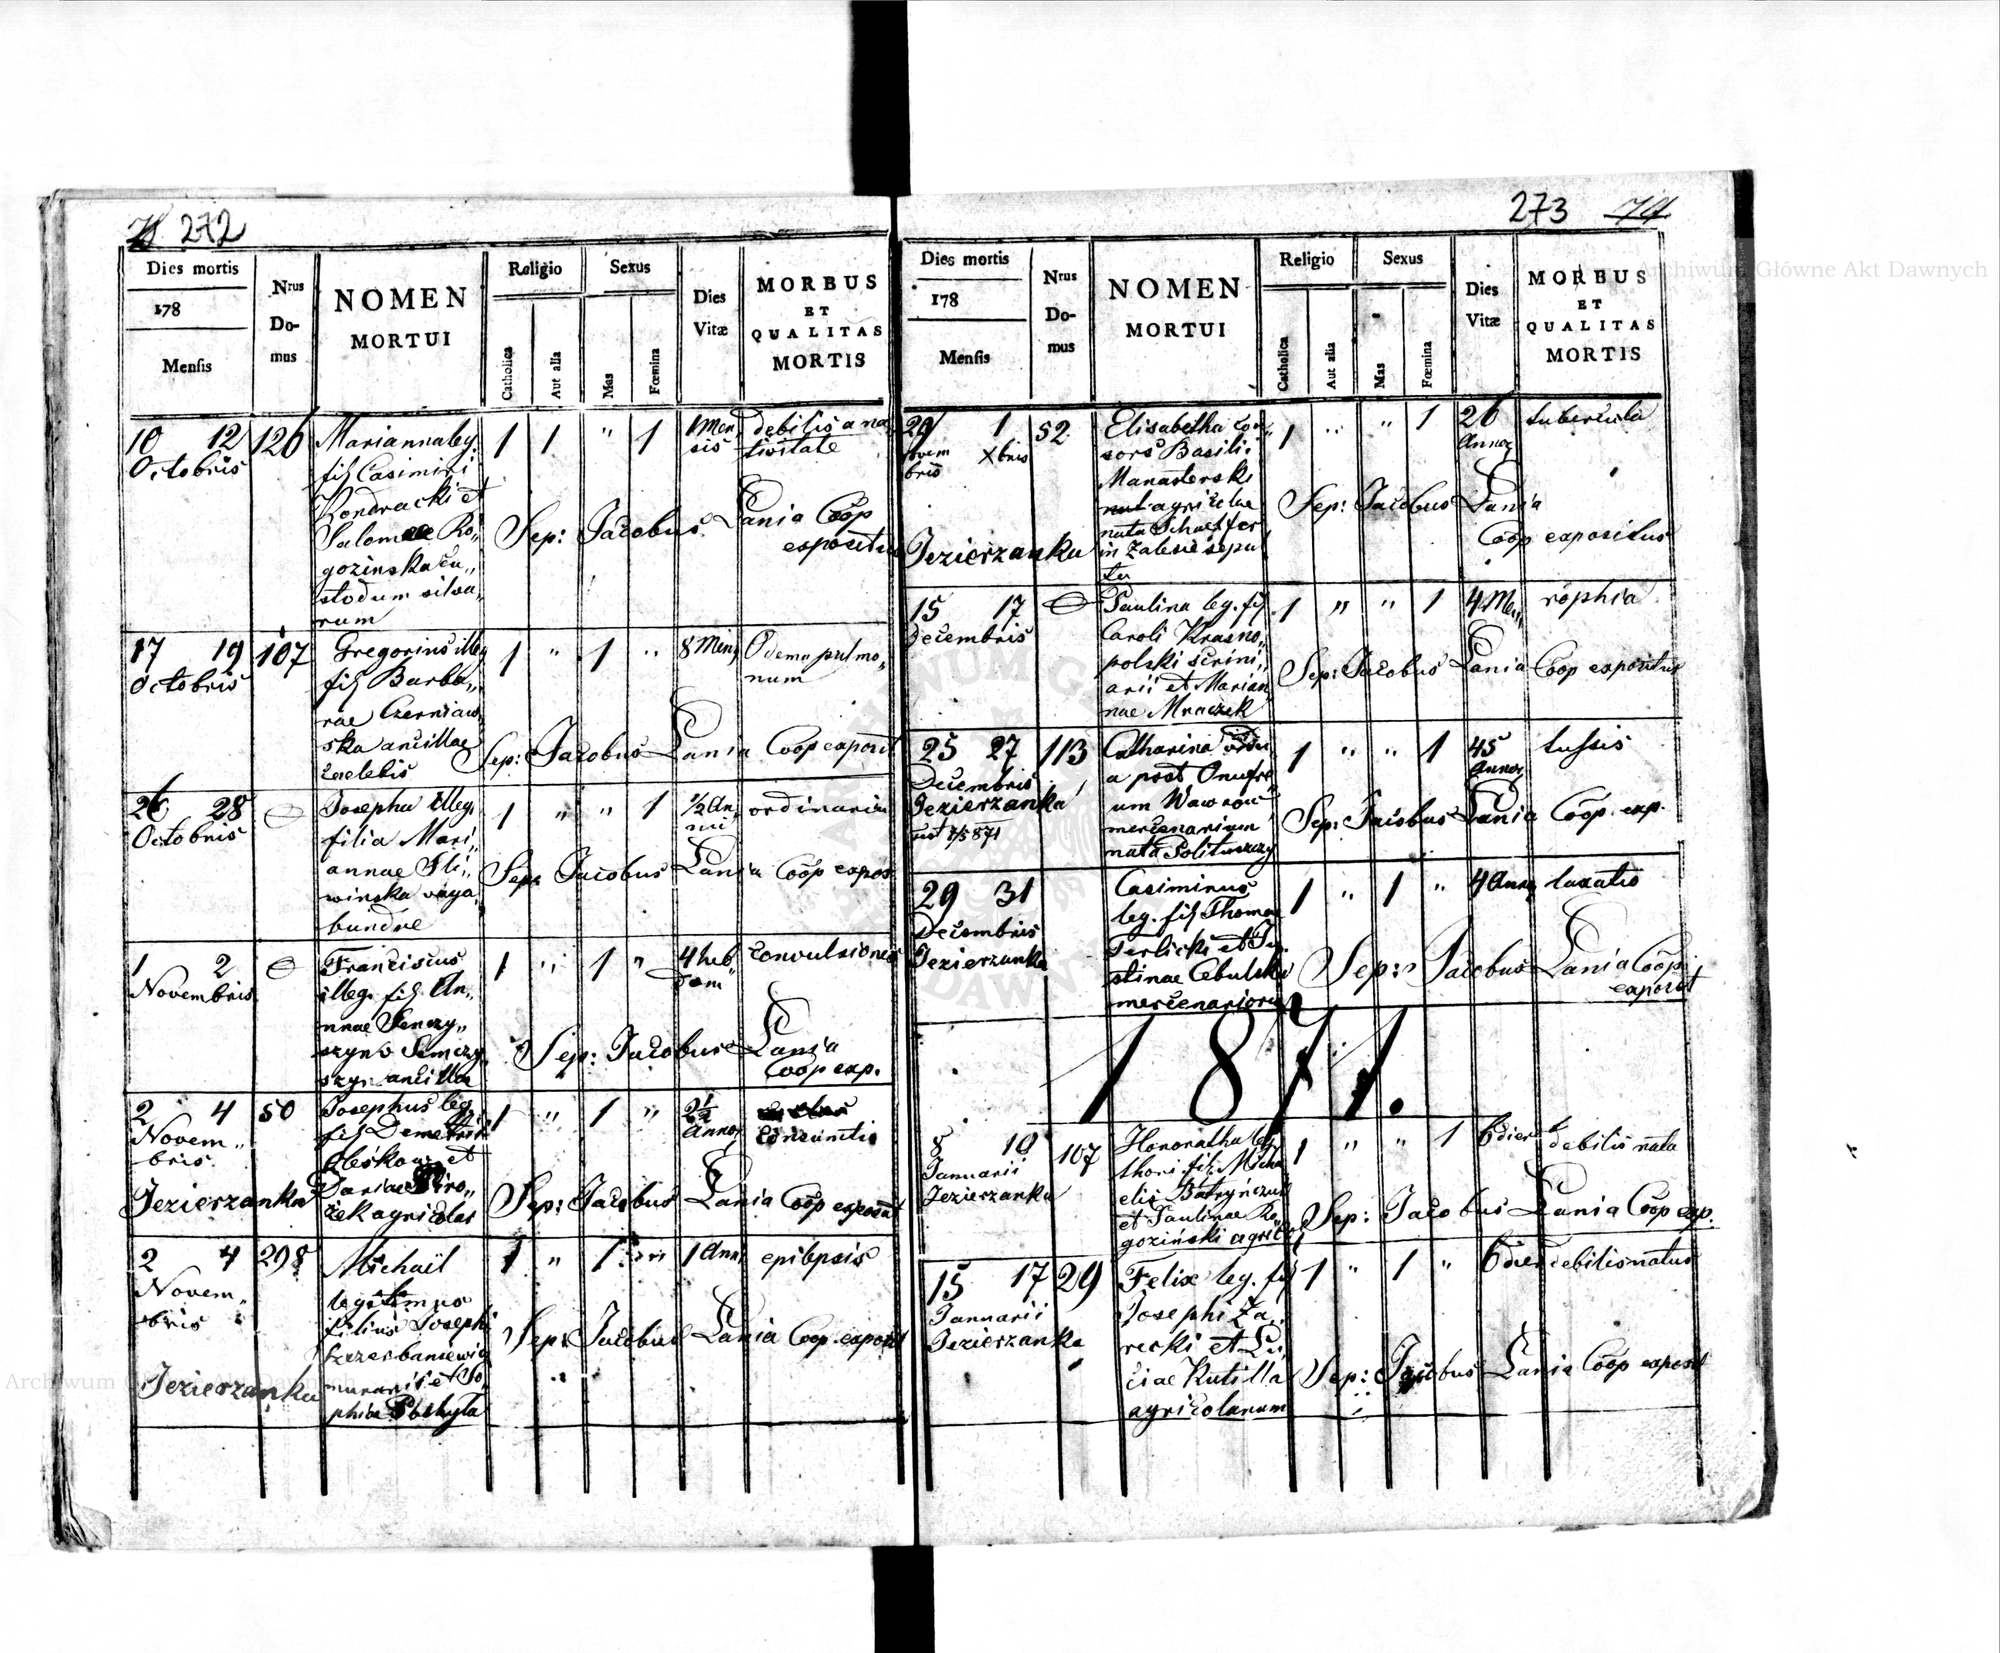 272
Dies mortis
178
Mensis
Nrus
Do-
mus
NOMEN
MORTUI
Religio
Catholica
Aut alia
Sexus
Mas
Fœmina
Dies
Vitæ
MORBUS
ET
QUALITAS
MORTIS
10 12 126
Octobris
Marianna leg.
filj Casimiri
Kondracki et
Salomeae Ro„
gozinska cu„
stodum silva„
rum
1 1 " 1
1 Men„
sis
debilis a na„
tivitate
Sep: Jacobus Lania Coop
expositus
17 19 107
Octobris
Gregorius illeg
filj Barba„
rae Czerniaw„
ska ancillae
caelebis
1 " 1 "
8 Men„
Odema pulmo„
num
Sep: Jacobus Lania Coop exposit
26 28
Octobris
Josepha illeg.
filia Mari„
annae Sli„
winska vaga„
bundae
1 " " 1
½ An„
ni
ordinaria
Sep: Jacobus Lania Coop expos
1 2
Novembris
Franciscus
illeg. filj. An„
nnae Senczy„
szyn v Semczy„
szyn ancillae
1 " 1 "
4 heb
dom„
convulsiones
Sep: Jacobus Lania
Coop exp.
2 4 50
Novem„
bris.
Jezierzanka
Josephus leg.
filj Demetrii
Oleskow et
Mariae
żek agricolar
1 " 1 "
2½
Annor
Sep: Jacobus Lania Coop exposit
2 4 298
Novem„
bris
Jezierzanka
Michaïl
legitimus
filius Josephi
Szczerbaniewicz
murarii et So„
phiae
1 " 1
1 Ann
epilepsis
Sep: Jacobus Lania Coop. exposit
273
Dies mortis
178
Mensis
Nrus
Do-
mus
NOMEN
MORTUI
Religio
Catholica
Aut alia
Sexus
Mas
Fœmina
Dies
Vitæ
MORBUS
ET
QUALITAS
MORTIS
29 1 52
Novem Xbris
bris
Jezierzanka
Elisabetha con„
sors Basilii
Manasterski
agricolae
nata Schaeffer
in Zalesie sepul
ta
1 " " 1
26
Annor
tubercula
Sep: Jacobus Lania
Coop expositus
15 17
Decembris
Paulina leg. filj
Caroli Krasno„
polski scrini„
arii et Marian
nae Mraczek
1 " " 1
4 Men„
rophia
Sep: Jacobus Lania Coop expositus
25 27 113
Decembris
Jezierzanka
Catharina vidu„
a post Onufre
um Wawrow
mercenarium
nata
1 " " 1
45
Annor
tussis
Sep: Jacobus Lania Coop. exp.
29 31
Decembris
Jezierzanka
Casimirus
leg. filj Thomae
Terlicki et Ju„
stinae Cebulska
mercenariorum
1 " 1 "
4 Annor
laxatio
Sep: Jacobus Lania Coop:
exposit
1871.
8 10 107
Januarii
Jezierzanka
Honoratha leg.
thori filj. Micha
elis
et Paulinae Ro„
goziński agricol
1 " " 1
6 dier
debilis nata
Sep: Jacobus Lania Coop exp.
15 17 29
Januarii
Jezierzanka
Felix leg. filj
Josephi Za„
recki et Lu„
ciae Kutilla
agricolarum
1 " 1 "
6 dier
debilis natus
Sep: Jacobus Lania Coop exposit
Archiwum Główne Akt Dawnych